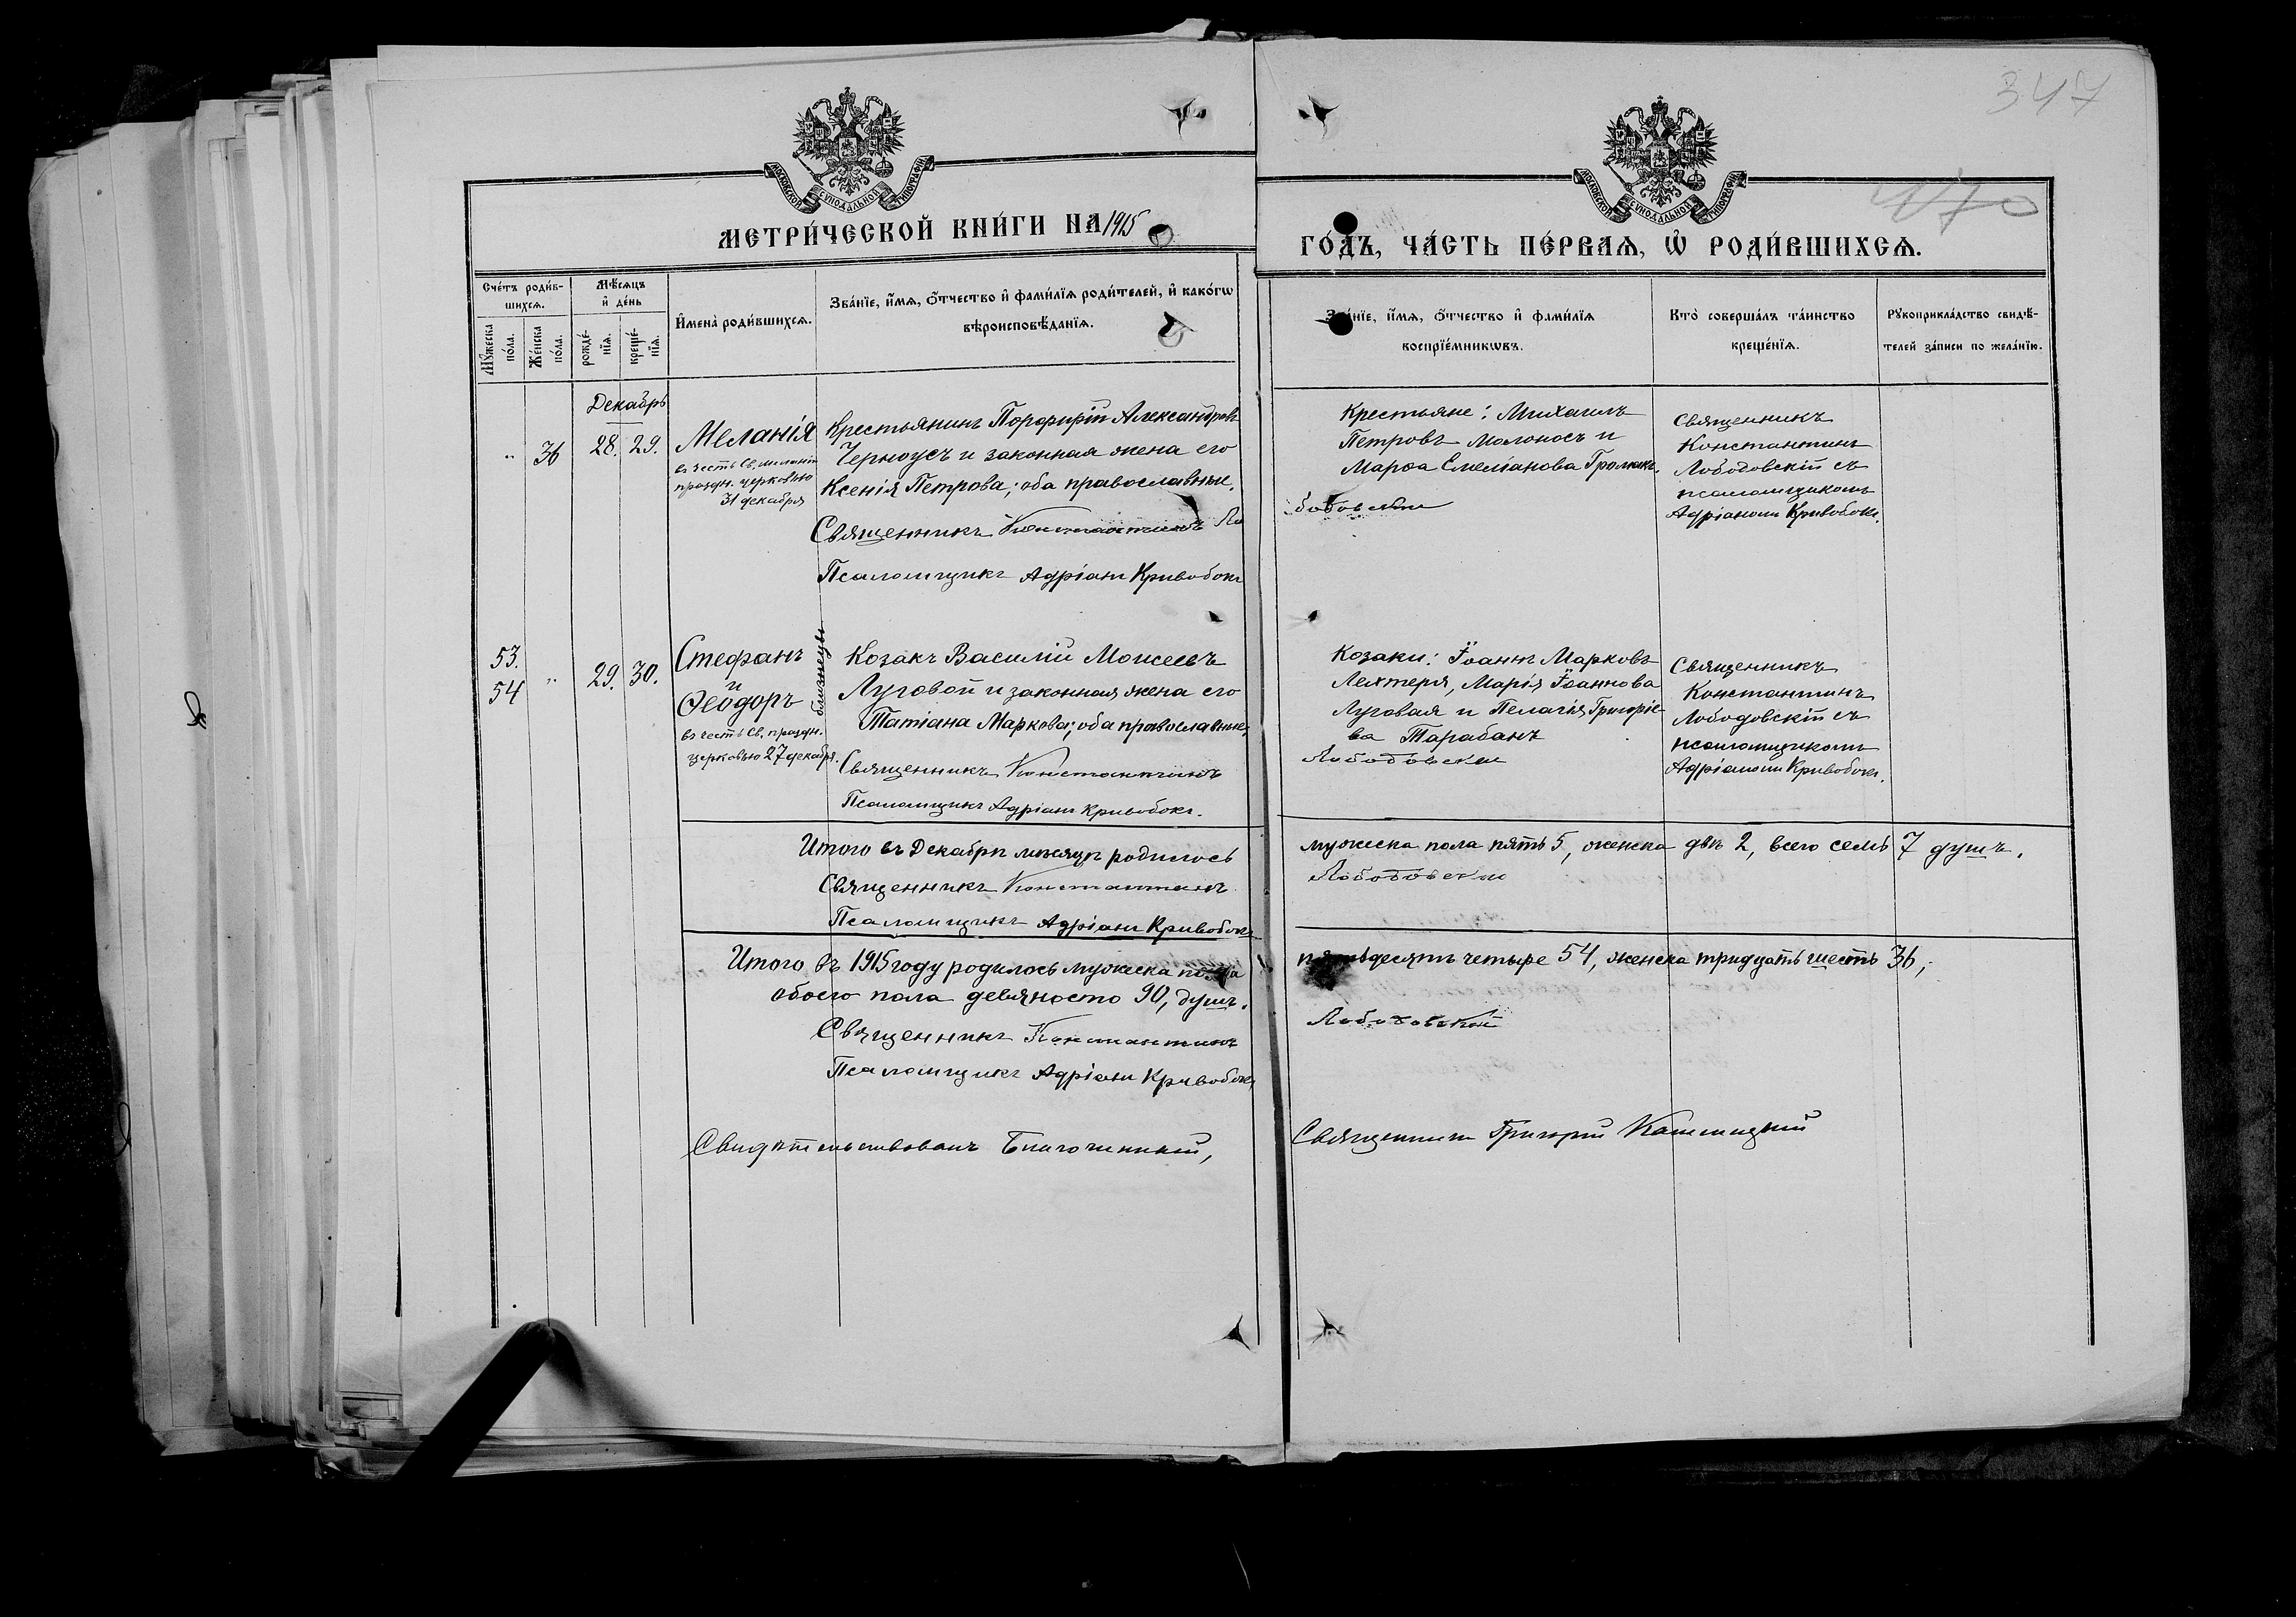 347
470
МОСКОВСКОЙ СУНОДАЛЬНОЙ ТИПОГРАФІИ
МОСКОВСКОЙ СУНОДАЛЬНОЙ ТИПОГРАФІИ
МЕТРИ́ЧЕСКОЙ КНИ́ГИ НА 1915
ГО́ДЪ, ЧА́СТЬ ПЕ́РВАѦ, Ѡ҆ РОДИ́ВШИХСѦ.
Сче́тъ роди́в-
шихсѧ.
Мꙋ́жеска
по́ла.
Же́нска
по́ла.
Мѣ́сѧцъ
и҆ де́нь
рожде́-
нїѧ.
креще́-
нїѧ.
И҆мена̀ роди́вшихсѧ.
Зва́нїе, и҆́мѧ, ѻ҆́тчество и҆ фами́лїѧ роди́телей, и҆ како́гѡ
вѣроисповѣ́данїѧ.
Зва́нїе, и҆́мѧ, ѻ҆́тчество и҆ фами́лїѧ
воспрїе́мникѡвъ.
Кто̀ соверша́лъ та́инство
креще́нїѧ.
Рꙋкоприкла́дство свидѣ́-
телей за́писи по жела́нїю.
Декабрь
„ 36 28. 29.
Меланія
въ честь Св. Меланіи
праздн. церковью
31 декабря
Крестьянинъ Порфирій Александровъ
Черноусъ и законная жена его
Ксенія Петрова; оба православные.
Священникъ Константинъ Ло
Псаломщикъ Адріанъ Кривобокъ
Крестьяне: Михаилъ
Петровъ Молоносъ и
Марѳа Емеліанова Громакъ.
бодовскій
Священникъ
Константинъ
Лободовскій съ
псаломщикомъ
Адріаномъ Кривобокъ.
53.
54 „ 29. 30.
Стефанъ
и
Ѳеодоръ
близнецы
въ честь Св. праздн.
церковью 27 декабря.
Козакъ Василій Моисеевъ
Луговой и законная жена его
Татіана Маркова; оба православные.
Священникъ Константинъ
Псаломщикъ Адріанъ Кривобокъ.
Козаки: Іоаннъ Марковъ
Лехтеря, Марія Іоаннова
Луговая и Пелагія Григоріе-
ва Тарабанъ
Лободовскій
Священникъ
Константинъ
Лободовскій съ
псаломщикомъ
Адріаномъ Кривобокъ.
Итого въ Декабрѣ мѣсяцѣ родилось
мужеска пола пять 5, женска двѣ 2, всего семь 7 душъ.
Священникъ Константинъ
Лободовскій
Псаломщикъ Адріанъ Кривобокъ
Итого въ 1915 году родилось мужеска пола
пятьдесятъ четыре 54, женска тридцать шесть 36,
обоего пола девяносто 90, душъ.
Священникъ Константинъ
Лободовскій
Псаломщикъ Адріанъ Кривобокъ
Свидѣтельствовалъ Благочинный,
Священникъ Григорій